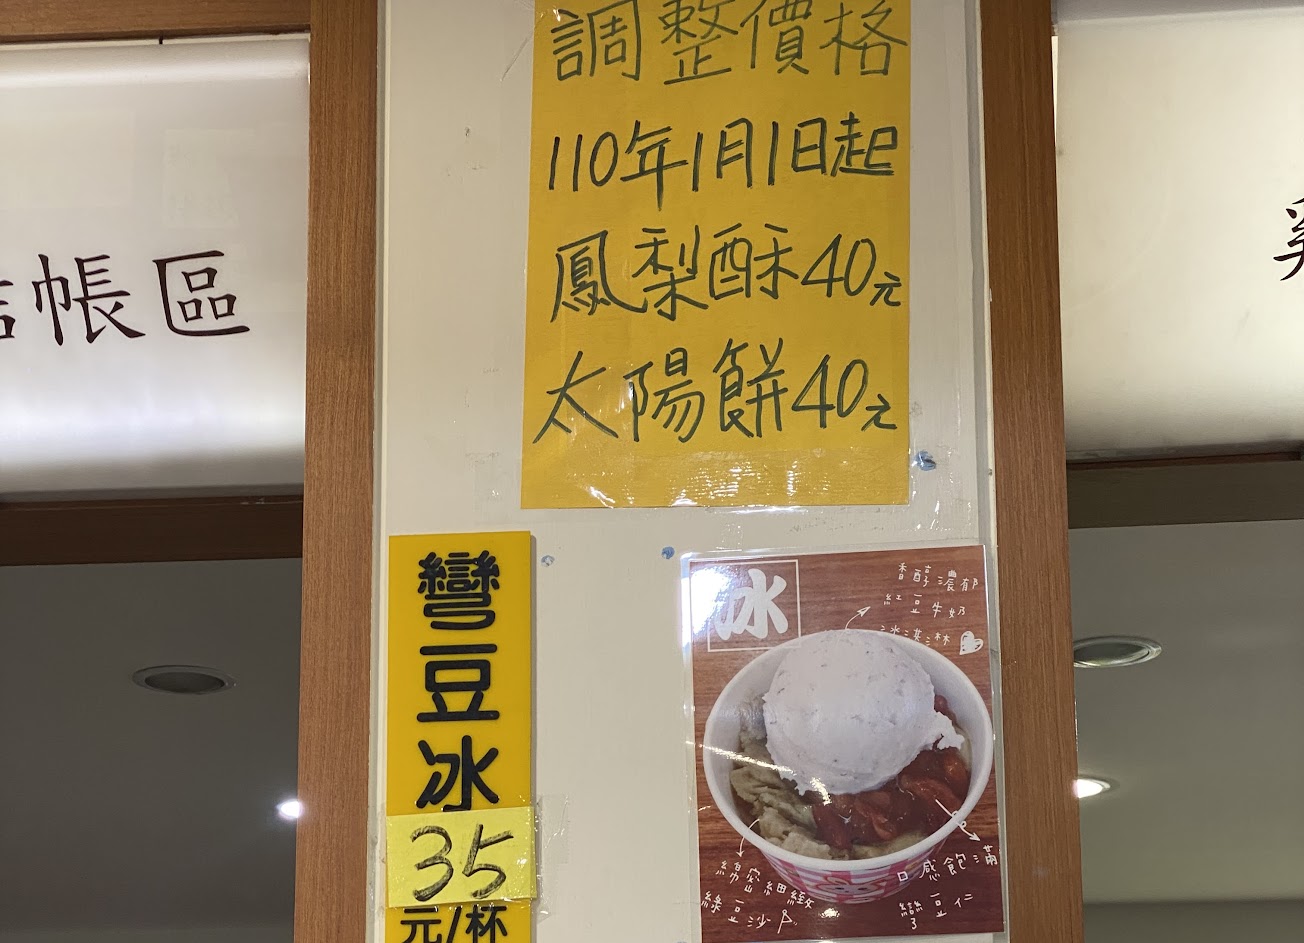 調整價格
110年1月1日起
鳳梨酥40元
太陽餅40元
帳區
彎豆冰
35
元/杯
冰
香醇濃郁
紅豆牛奶
冰淇淋
綿密細緻
綠豆沙
口感飽滿
彎豆仁